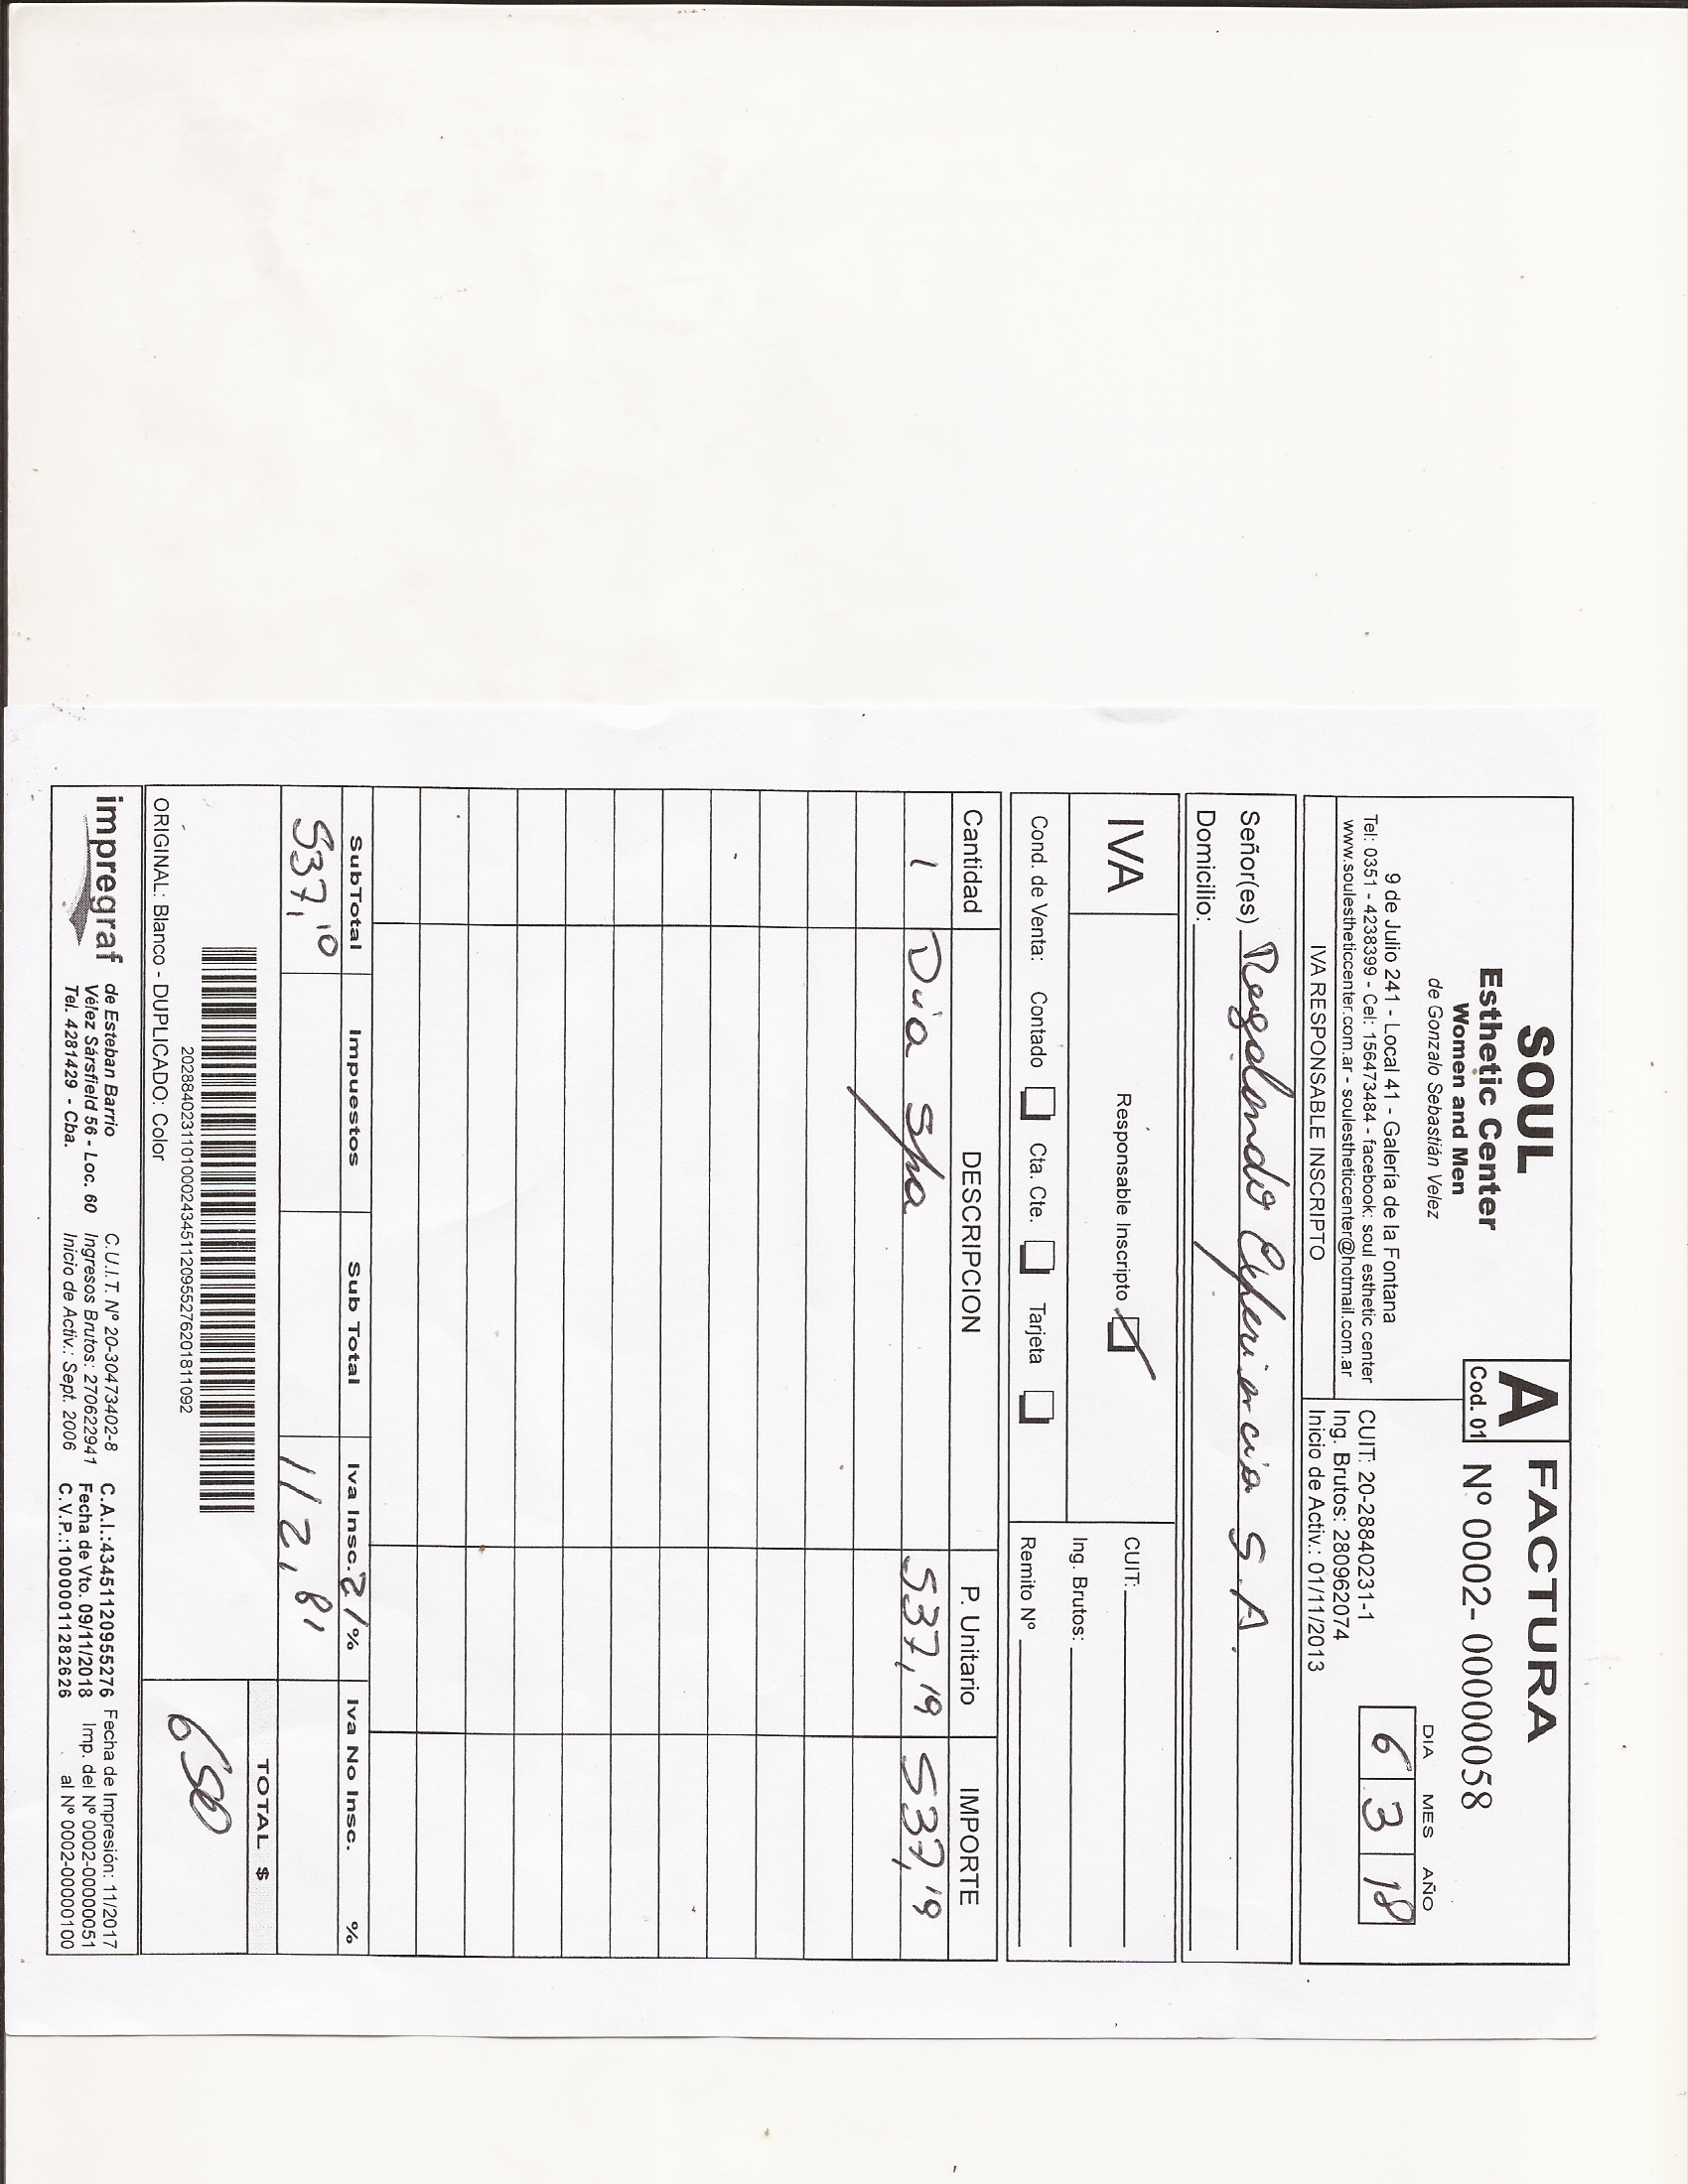 SOUL
Esthetic Center
Women and Men
de Gonzalo Sebastián Velez
9 de Julio 241 - Local 41 - Galería de la Fontana
Tel: 0351 - 4238399 - Cel: 156473484 - facebook: soul esthetic center
www.soulestheticcenter.com.ar - soulestheticcenter@hotmail.com.ar
IVA RESPONSABLE INSCRIPTO
A
Cod. 01
FACTURA
Nº 0002- 00000058
DIA MES AÑO
6 3 18
CUIT: 20-28840231-1
Ing. Brutos: 280962074
Inicio de Activ.: 01/11/2013
Señor(es) Regalando Experiencia S.A.
Domicilio:
IVA
Responsable Inscripto
CUIT:
Ing. Brutos:
Cond. de Venta: Contado Cta. Cte. Tarjeta
Remito Nº
Cantidad DESCRIPCION P. Unitario IMPORTE
1 Dia Spa 537,19 537,19
SubTotal Impuestos Sub Total Iva Insc. 21% Iva No Insc. %
537,10 112,81
TOTAL $
650
20288402311010002434511209552762018110​92
ORIGINAL: Blanco - DUPLICADO: Color
impregraf
de Esteban Barrio
Vélez Sársfield 56 - Loc. 60
Tel. 4281429 - Cba.
C.U.I.T. Nº 20-30473402-8
Ingresos Brutos: 270622941
Inicio de Activ.: Sept. 2006
C.A.I.:43451120955276
Fecha de Vto. 09/11/2018
C.V.P.:10000011282626
Fecha de Impresión: 11/2017
Imp. del Nº 0002-00000051
al Nº 0002-00000100